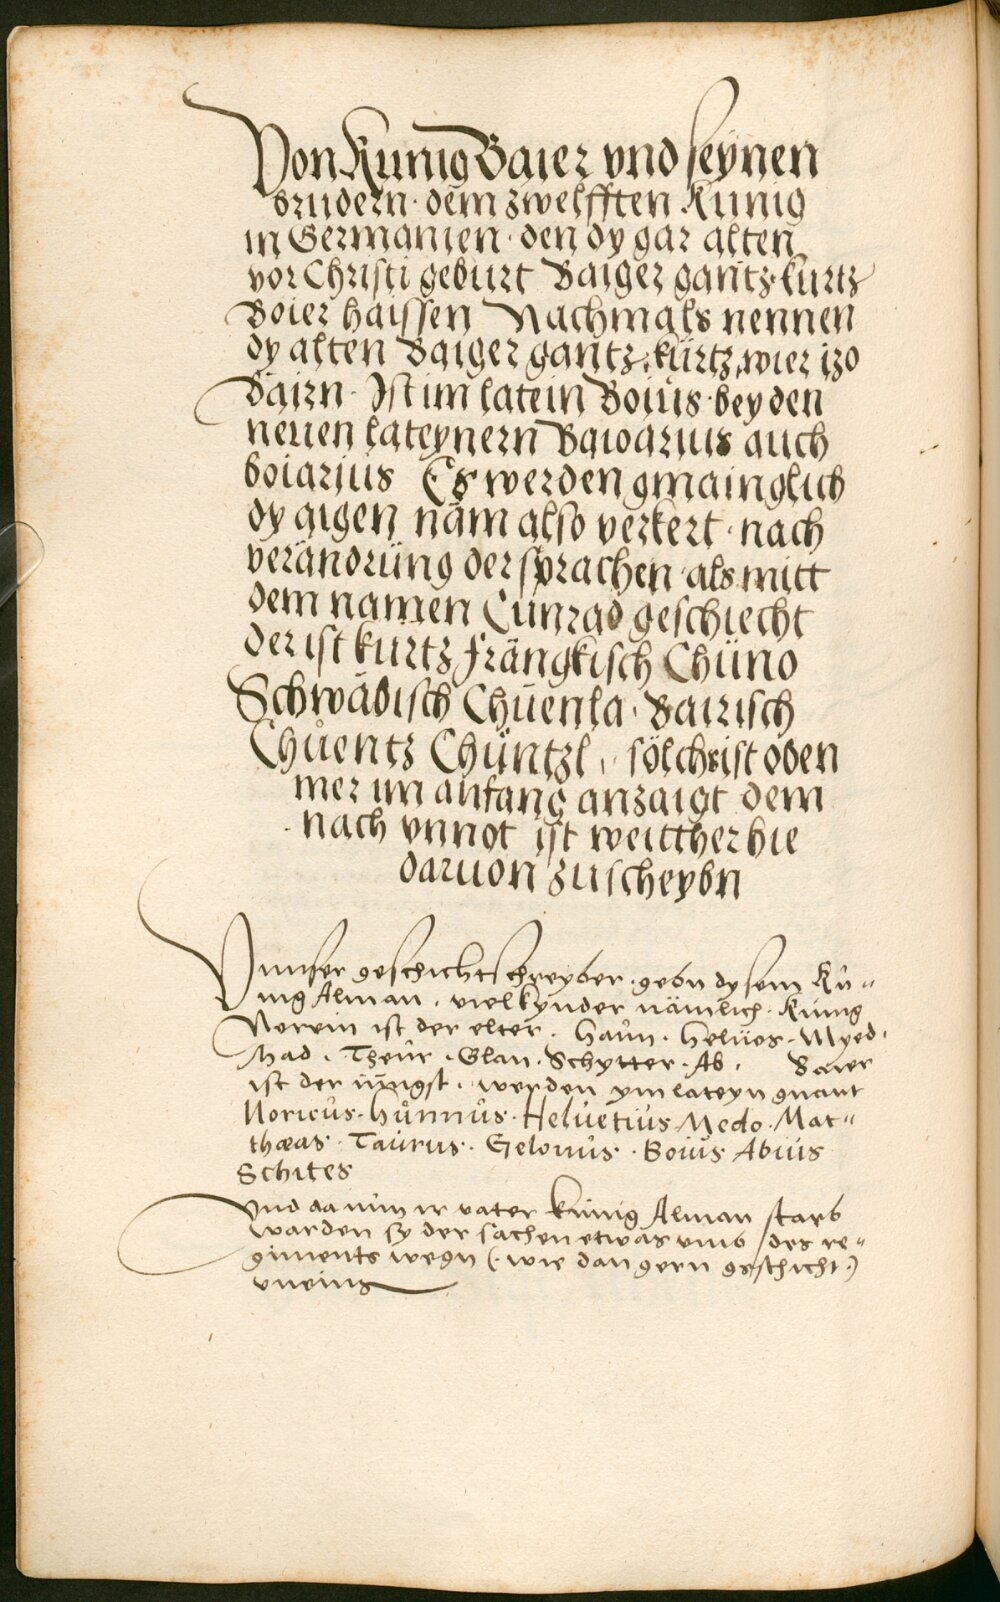 Von Kunig Baier vnd seynen
brudern · dem zwelfften Kunig
in Germanien · den dy gar alten
vor Christi geburt Baiger gantz kurtz
Boier haissen Nachmals nennen
dy alten Baiger gantz kürtz, wier izo
Bairn · Ist im latein Boius · bey den
neuen lateynern Baioarius auch
boiarius Es werden gmainglich
dy aigen näm also verkert · nach
verändrüng der sprachen als mitt
dem namen Cunrad geschiecht
der ist kurtz frängkisch Chüno
Schwäbisch Chüenla · Bairisch
Chuentz Chüntzl · sölchs ist oben
mer im anfang anzaigt dem
nach vnnot ist weitther hie
daruon zuscheybn
Vnnser geschichtschreyber · gebn dysem Kü=
nig Alman · viel kynder nämlich · Künig
Norein ist der elter · Haun · Helües · Myed ·
Mad · Theur · Glan · Schytter · Ab · Baier
ist der iüngst · werden ym lateyn gnant
Noricus · Hunnus · Heluetius Medo · Mat=
thæas · Taurus · Gelonus · Boius Abius
Schites
Vnd da nun ir vater künig Alman starb
warden sy der sachen etwas vmb des re=
giments wegn (· wie dan gern geschicht ·)
vneins